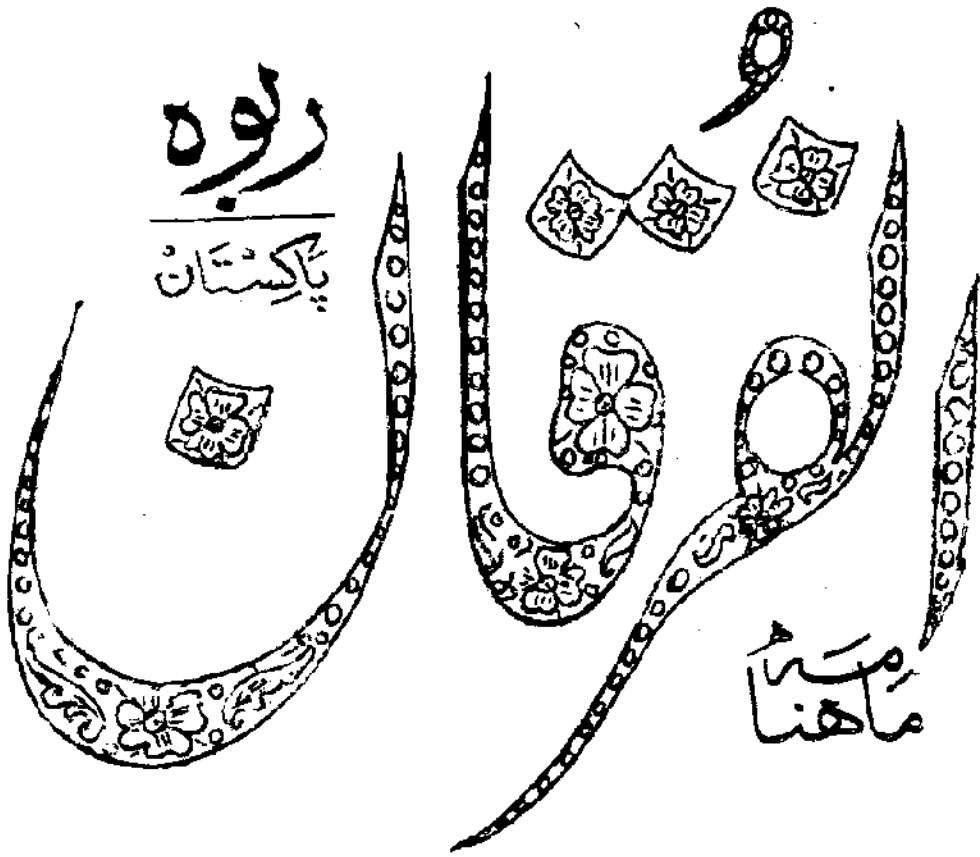 ماهنامہ
الفُرقان
ربوہ
پَاکِسْتَانْ